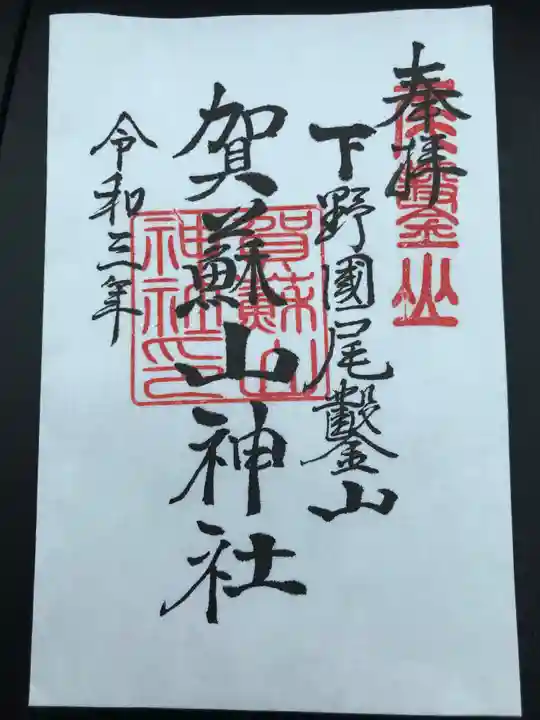 奉拝
下野國尾鑿山
賀蘇山神社
賀蘇山
神社印
令和三年